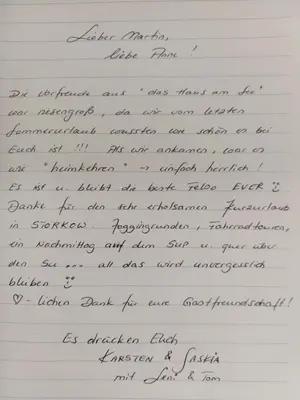 Lieber Martin,
liebe Anne!
Die Vorfreude aus "das Haus am See"
war riesengroß, da wir vom letzten
Sommerurlaub wussten wie schön es bei
Euch ist!!! Als wir ankamen, war es
wie "heimkehren" → einfach herrlich!
Es ist u. bleibt die beste FeWo EVER
Danke für den sehr erholsamen Kurzurlaub
in STORKOW. Joggingrunden, Fahrradtouren,
ein Nachmittag auf dem SuP u. quer über
den See... all das wird unvergesslich
bleiben
♡-lichen Dank für eure Gastfreundschaft!
Es drücken Euch
KARSTEN & SASKIA
mit Leni & Tom